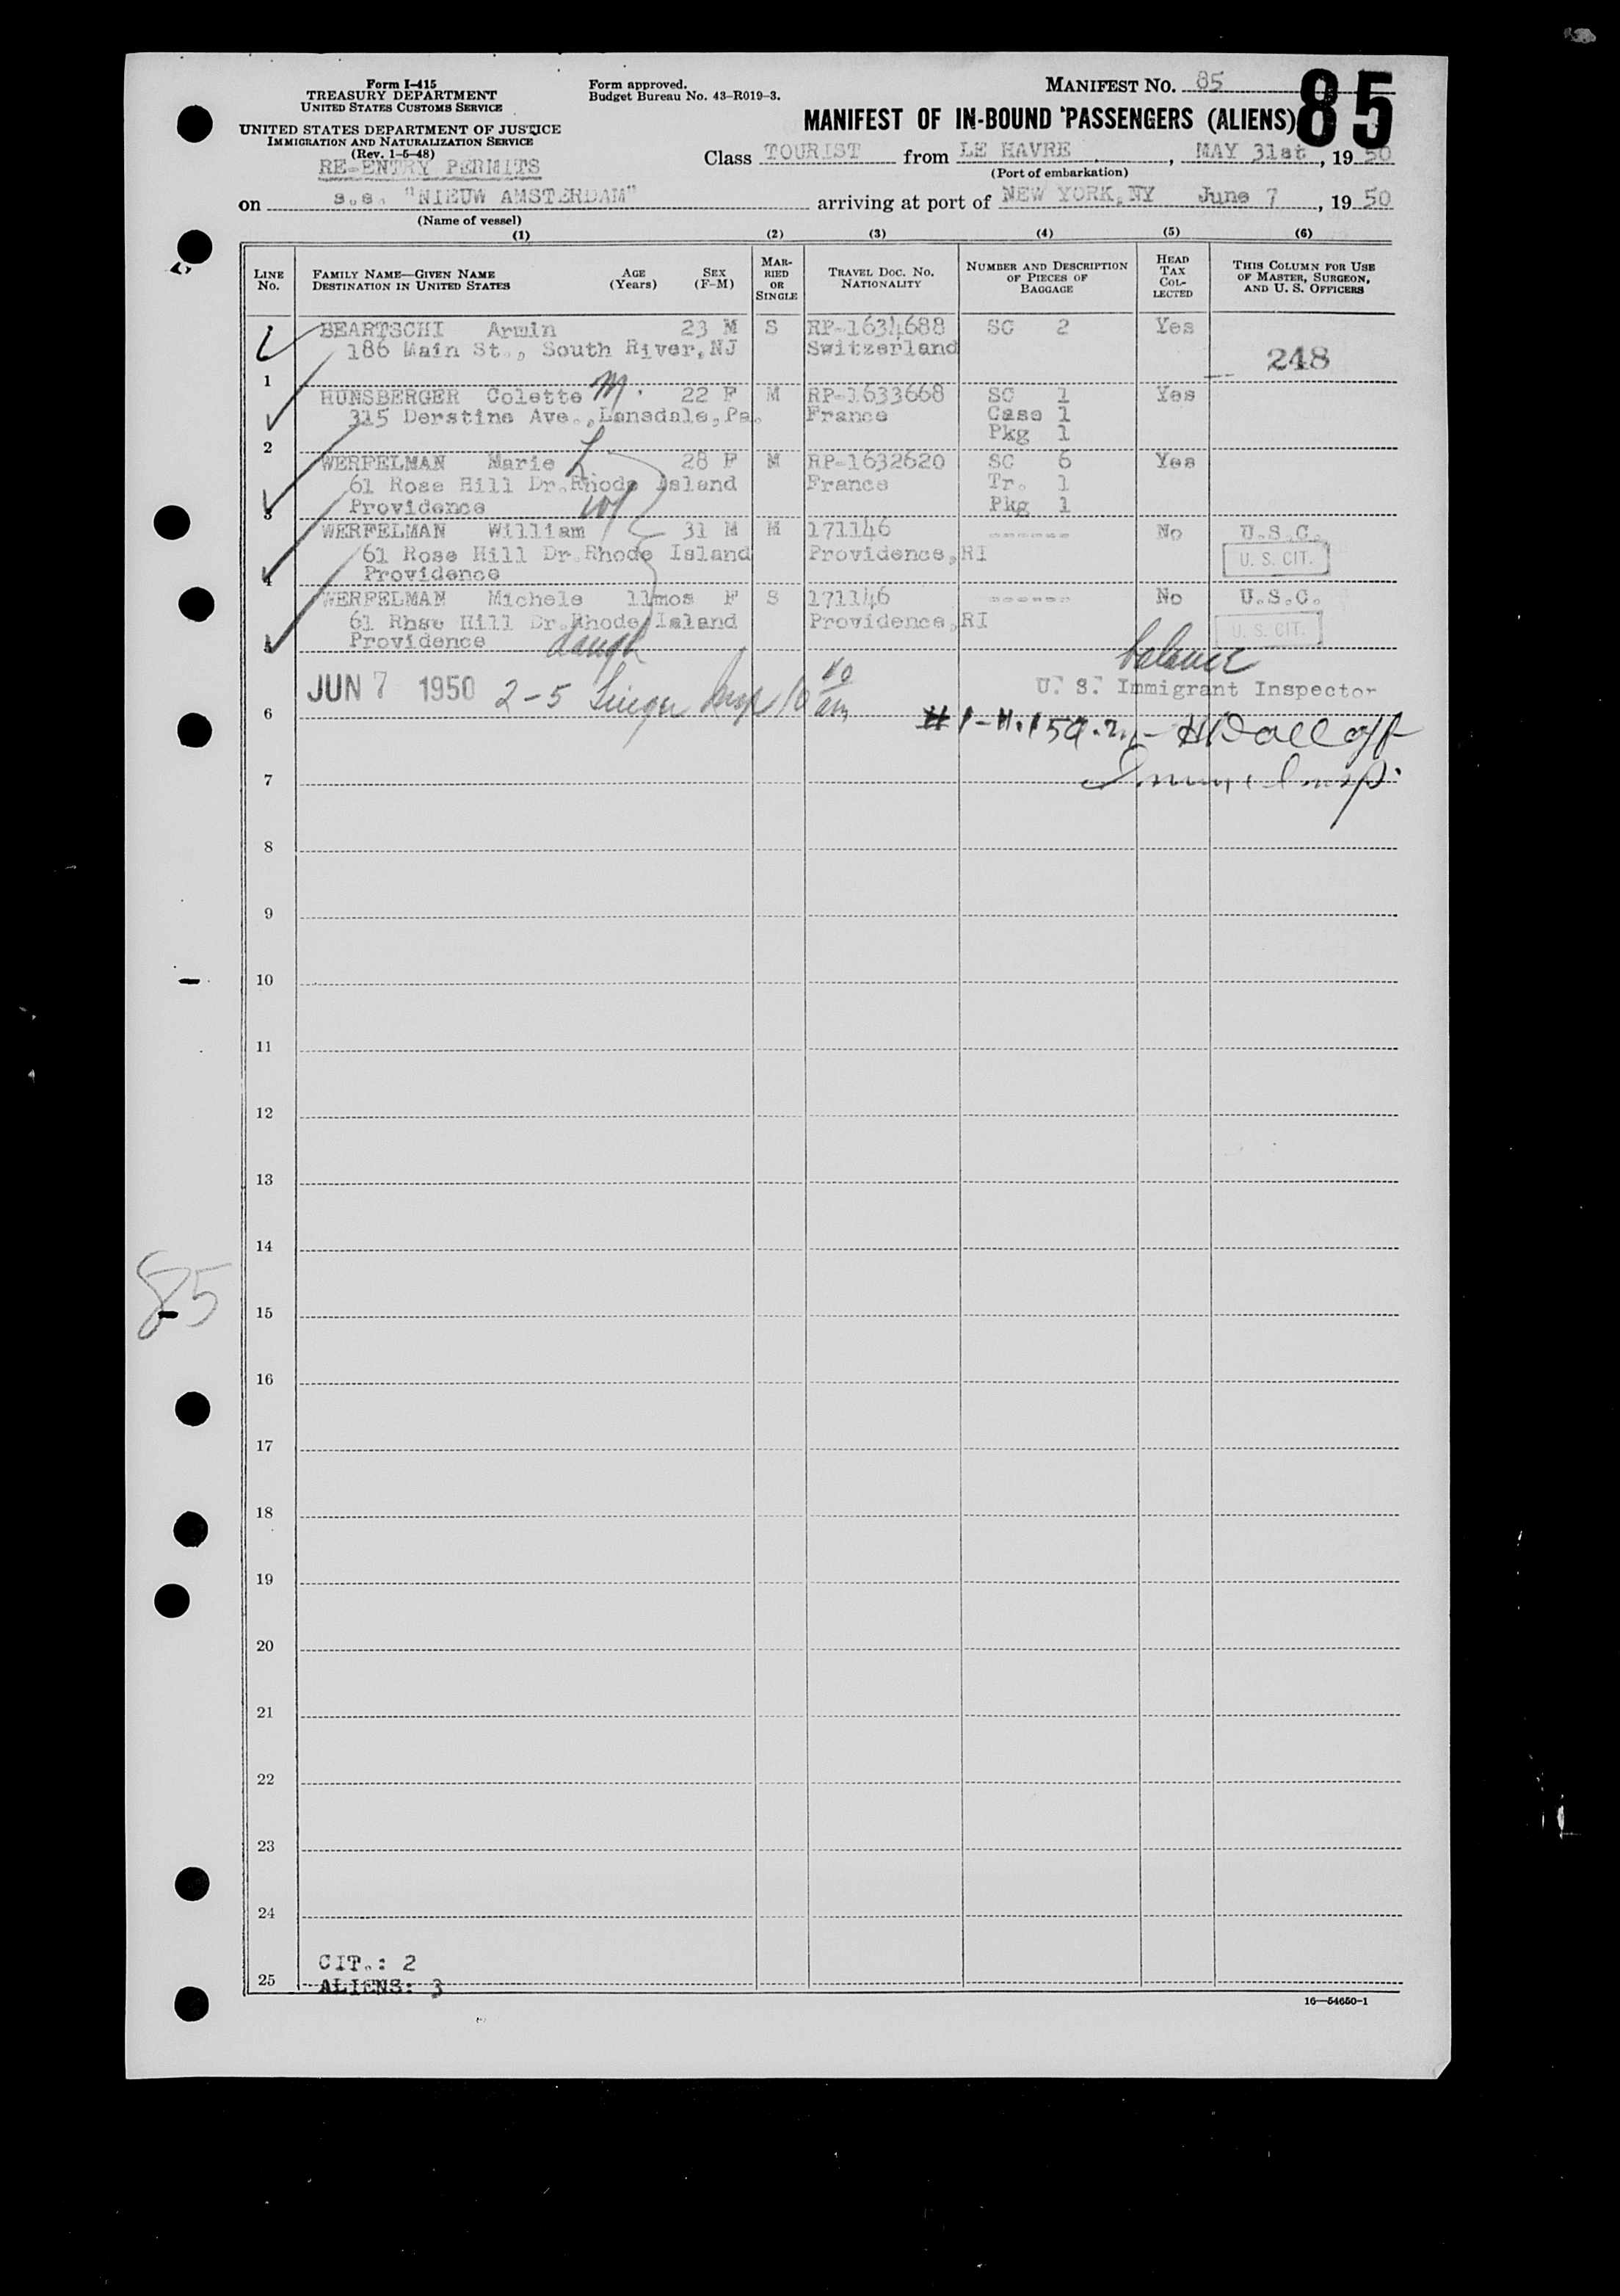 Form I-415
TREASURY DEPARTMENT
UNITED STATES CUSTOMS SERVICE
UNITED STATES DEPARTMENT OF JUSTICE
IMMIGRATION AND NATURALIZATION SERVICE
(Rev. 1-5-48)
RE-ENTRY PERMITS
Form approved.
Budget Bureau No. 43-R019-3.
MANIFEST NO. 85
85
MANIFEST OF IN-BOUND PASSENGERS (ALIENS)
Class TOURIST from LE HAVRE, MAY 31st, 19 50
(Port of embarkation)
on s.s. "NIEUW AMSTERDAM" arriving at port of NEW YORK, NY June 7, 19 50
(Name of vessel)
(1) (2) (3) (4) (5) (6)
LINE NO. FAMILY NAME—GIVEN NAME DESTINATION IN UNITED STATES AGE (Years) SEX (F-M) MARRIED OR SINGLE TRAVEL DOC. NO. NATIONALITY NUMBER AND DESCRIPTION OF PIECES OF BAGGAGE HEAD TAX COLLECTED THIS COLUMN FOR USE OF MASTER, SURGEON, AND U. S. OFFICERS
BEARTSCHI Armin 23 M S RP-1634688 SC 2 Yes
186 Main St., South River, NJ Switzerland 248
1
HUNSBERGER Colette M. 22 F M RP-1633668 SC 1 Yes
315 Derstine Ave., Lansdale, Pa. France Case 1
2 Pkg 1
WERFELMAN Marie L 28 F M RP-1632620 SC 6 Yes
61 Rose Hill Dr. Rhode Island France Tr. 1
3 Providence wf Pkg 1
WERFELMAN William 31 M M 171146 ------ No U.S.C.
61 Rose Hill Dr. Rhode Island Providence, RI U. S. CIT.
4 Providence
WERFELMAN Michele 11mos F S 171146 ------ No U.S.C.
61 Rhse Hill Dr. Rhode Island Providence, RI U. S. CIT.
5 Providence daugh
balance
JUN 7 1950 2-5 Singer Insp 10 40 am U. S. Immigrant Inspector
6
#1-H.
7 Immig Insp.
8
9
10
11
12
13
14
85
15
16
17
18
19
20
21
22
23
24
CIT.: 2
25 ALIENS: 3
16—54650-1